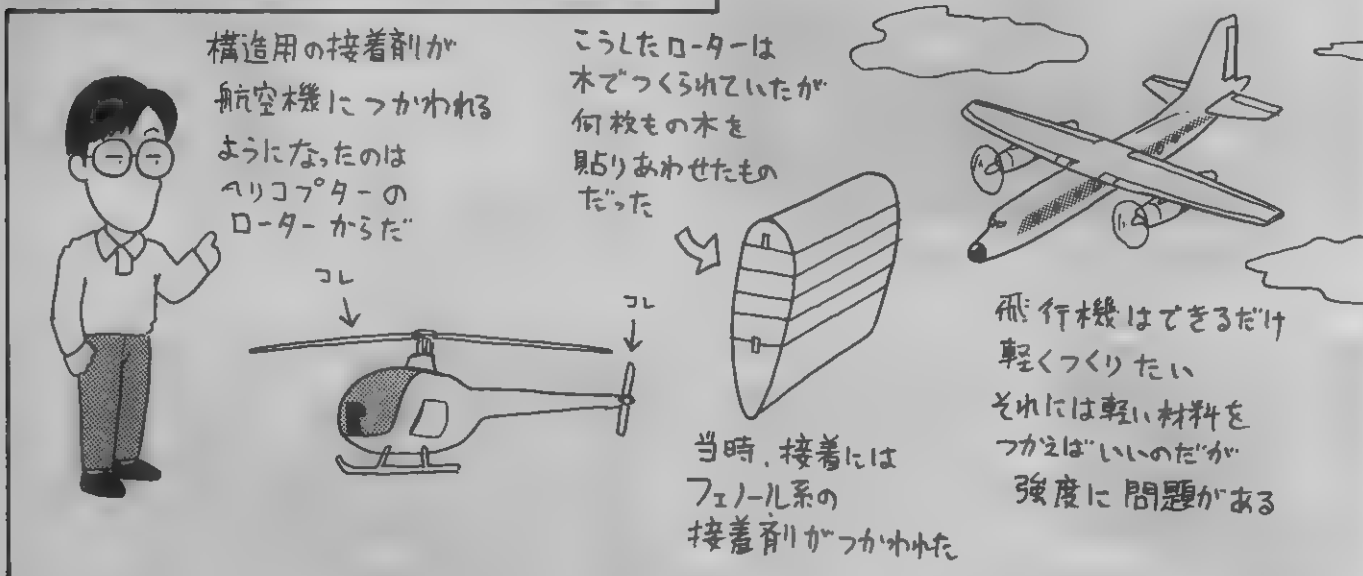 構造用の接着剤が
航空機につかわれる
ようになったのは
ヘリコプターの
ローターからだ
コレ
コレ
こうしたローターは
木でつくられていたが
何枚もの木を
貼りあわせたもの
だった
当時、接着には
フェノール系の
接着剤がつかわれた
飛行機はできるだけ
軽くつくりたい
それには軽い材料を
つかえばいいのだが
強度に問題がある